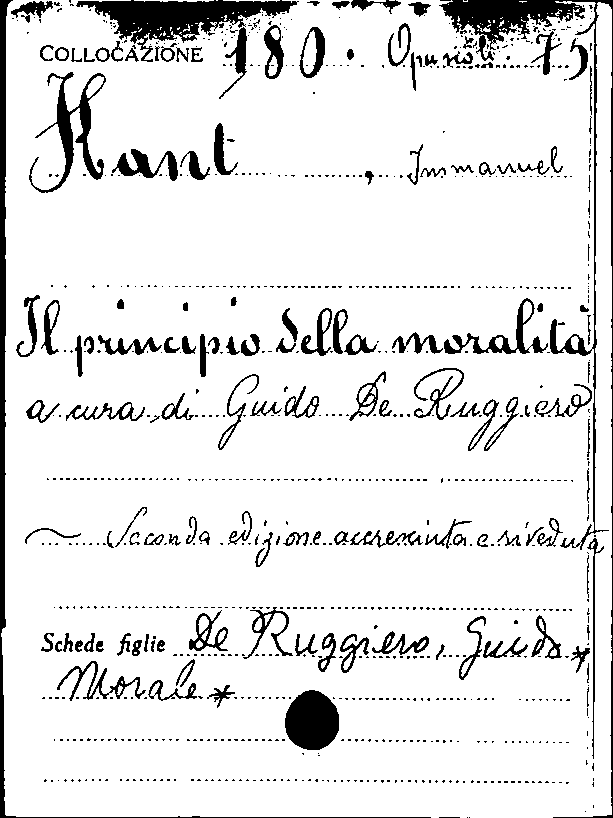 COLLOCAZIONE 180. Opuscoli. 75
Kant, Immanuel
Il principio della moralità
a cura di Guido De Ruggiero
— Seconda edizione accresciuta e riveduta
Schede figlie De Ruggiero, Guido *
Morale *